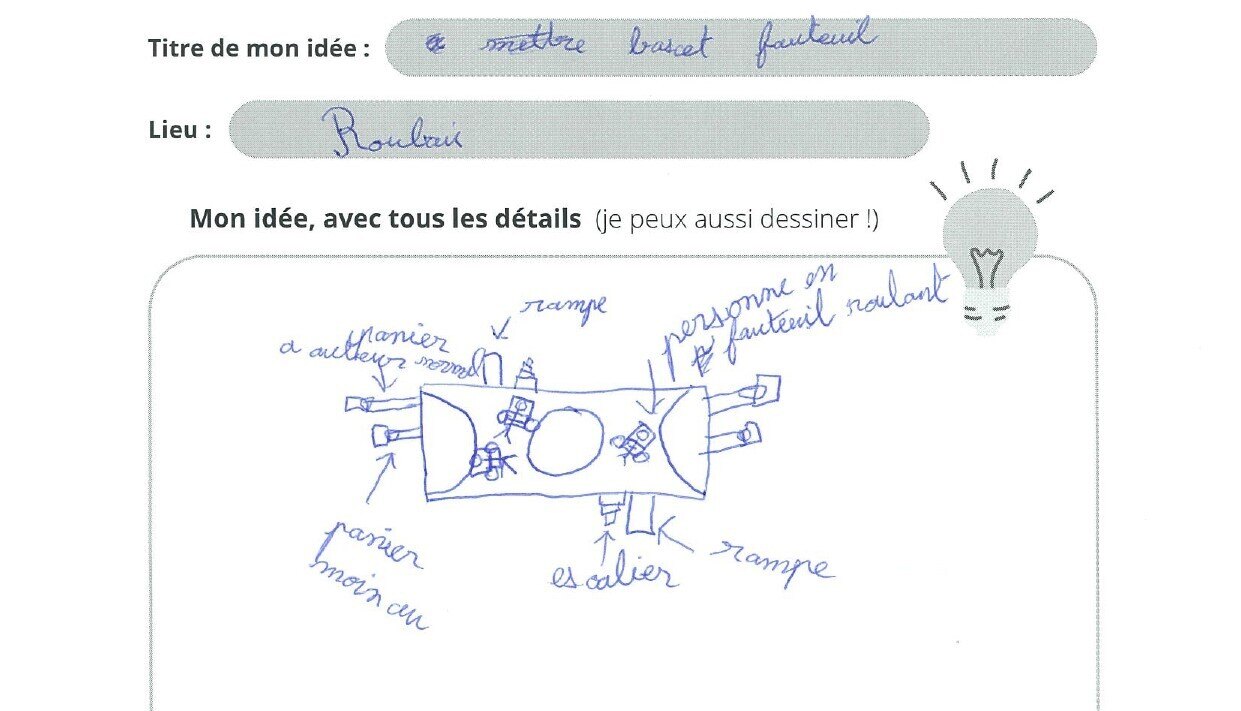 Titre de mon idée : mettre bascet fauteuil
Lieu : Roubaix
Mon idée, avec tous les détails (je peux aussi dessiner !)
rampe
personne en
fauteuil roulant
panier
a auteur normal
panier
moin au
escalier
rampe